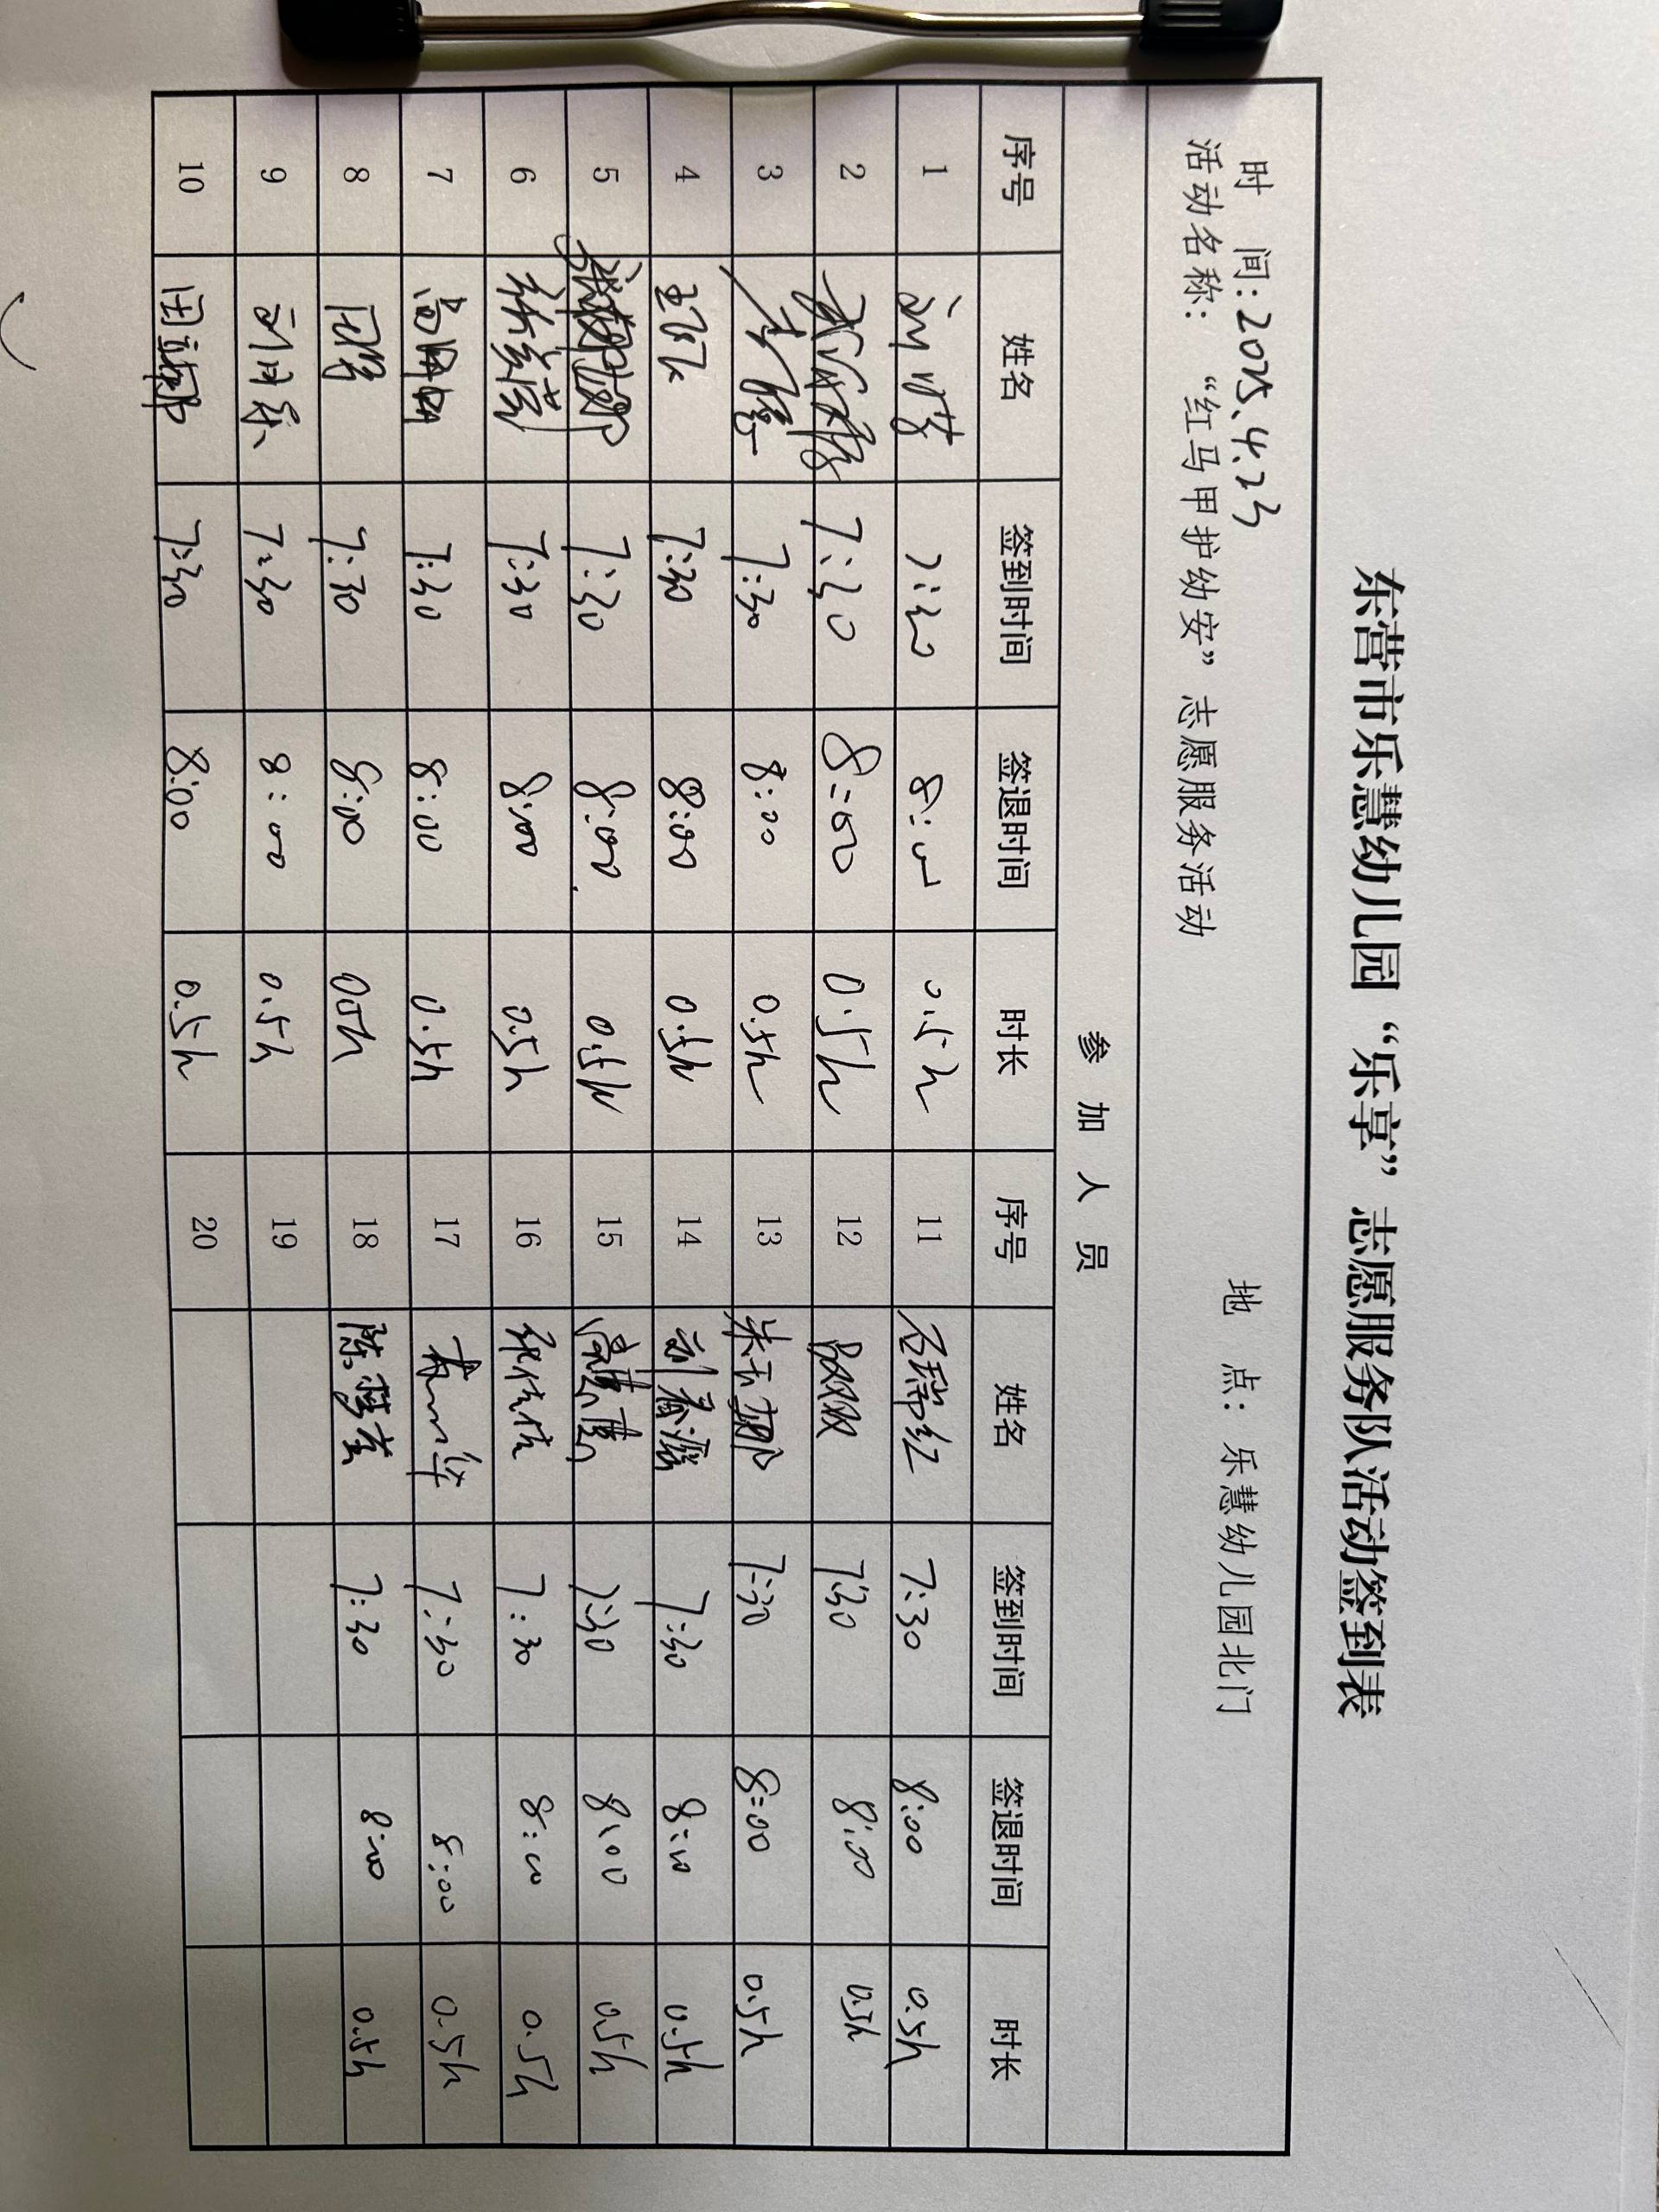 东营市乐慧幼儿园“乐享”志愿服务队活动签到表
时 间:2025.4.23 地 点: 乐慧幼儿园北门
活动名称: “红马甲护幼安” 志愿服务活动
参 加 人 员
序号 姓名 签到时间 签退时间 时长 序号 姓名 签到时间 签退时间 时长
1 7:30 8:00 0.5h 11 石瑞红 7:30 8:00 0.5h
2 7:30 8:00 0.5h 12 7:30 8:00 0.5h
3 7:30 8:00 0.5h 13 朱玉娜 7:30 8:00 0.5h
4 7:30 8:00 0.5h 14 刘春燕 7:30 8:00 0.5h
5 7:30 8:00 0.5h 15 7:30 8:00 0.5h
6 7:30 8:00 0.5h 16 张佳佳 7:30 8:00 0.5h
7 7:30 8:00 0.5h 17 7:30 8:00 0.5h
8 7:30 8:00 0.5h 18 陈梦雪 7:30 8:00 0.5h
9 7:30 8:00 0.5h 19
10 7:30 8:00 0.5h 20